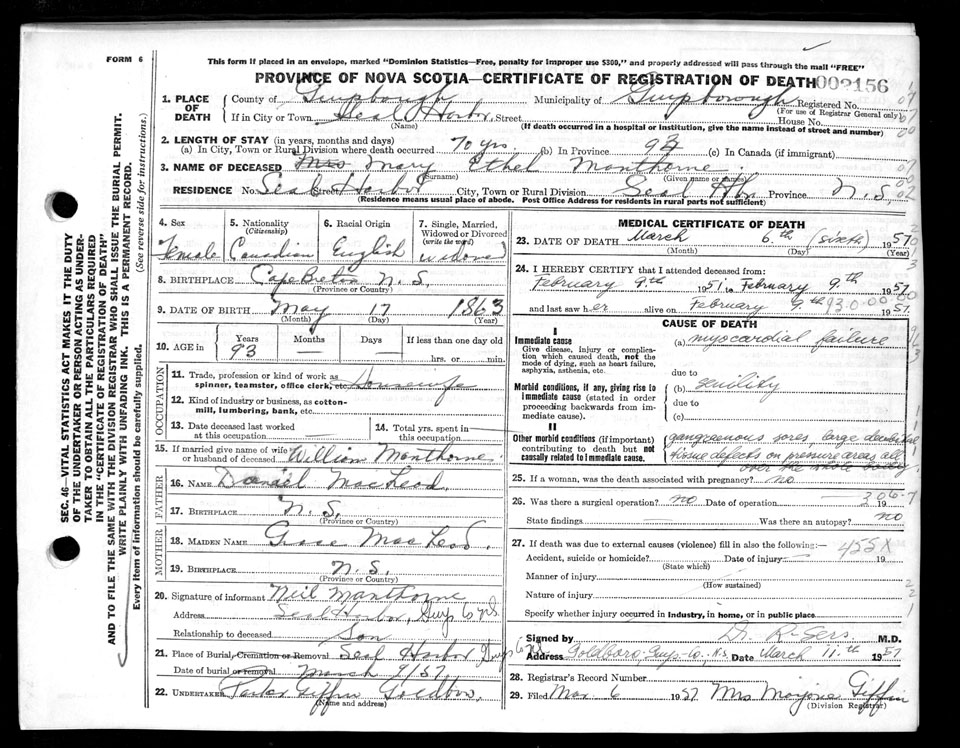 FORM 6
This form if placed in an envelope, marked "Dominion Statistics—Free, penalty for improper use $300," and properly addressed will pass through the mail "FREE"
PROVINCE OF NOVA SCOTIA—CERTIFICATE OF REGISTRATION OF DEATH 002156
1. PLACE OF DEATH County of Guysborough Municipality of Guysborough Registered No.
(For use of Registrar General only)
If in City or Town Seal Harbor Street House No.
(Name) (If death occurred in a hospital or institution, give the name instead of street and number)
2. LENGTH OF STAY (in years, months and days)
(a) In City, Town or Rural Division where death occurred 70 yrs. (b) In Province 93 (c) In Canada (if immigrant)
3. NAME OF DECEASED Mrs Mary Ethel Manthorne
(Surname) (Given name or names)
RESIDENCE No. Seal Street Harbor City, Town or Rural Division Seal Hbr Province N.S.
(Residence means usual place of abode. Post Office Address for residents in rural parts not sufficient)
4. Sex Female
5. Nationality (Citizenship) Canadian
6. Racial Origin English
7. Single, Married, Widowed or Divorced (write the word) Widowed
8. BIRTHPLACE Cape Breton N.S.
(Province or Country)
9. DATE OF BIRTH May 17 1863
(Month) (Day) (Year)
10. AGE in Years 93 Months — Days — If less than one day old
hrs. or min.
OCCUPATION
11. Trade, profession or kind of work as spinner, teamster, office clerk, etc. Housewife
12. Kind of industry or business, as cotton-mill, lumbering, bank, etc.
13. Date deceased last worked at this occupation
14. Total yrs. spent in this occupation
15. If married give name of wife or husband of deceased William Manthorne
FATHER
16. NAME Daniel MacLeod
17. BIRTHPLACE N.S.
(Province or Country)
MOTHER
18. MAIDEN NAME MacLeod
19. BIRTHPLACE N.S.
(Province or Country)
20. Signature of informant Neil Manthorne
Address Seal Harbor,
Relationship to deceased Son
21. Place of Burial, Cremation or Removal Seal Harbor
Date of burial or removal March 9/57
22. UNDERTAKER Parker Giffin Goldboro
(Name and address)
MEDICAL CERTIFICATE OF DEATH
23. DATE OF DEATH March 6th (sixth) 1957
(Month) (Day) (Year)
24. I HEREBY CERTIFY that I attended deceased from:
February 9th 1951 to February 9th 1957
and last saw her alive on February 9th 1957
CAUSE OF DEATH
I
Immediate cause
Give disease, injury or complication which caused death, not the mode of dying, such as heart failure, asphyxia, asthenia, etc.
(a) myocardial failure
due to
Morbid conditions, if any, giving rise to immediate cause (stated in order proceeding backwards from immediate cause).
(b) senility
due to
(c)
II
Other morbid conditions (if important) contributing to death but not causally related to immediate cause.
gangrenous sores large decubital
tissue defects on pressure areas all
over the body
25. If a woman, was the death associated with pregnancy? no
26. Was there a surgical operation? no Date of operation 19
State findings — Was there an autopsy? no
27. If death was due to external causes (violence) fill in also the following:—
Accident, suicide or homicide? Date of injury 19
(State which)
Manner of injury
(How sustained)
Nature of injury
Specify whether injury occurred in Industry, in home, or in public place
Signed by Dr. M.D.
Address Goldboro, Guys. Co. N.S. Date March 11th 1957
28. Registrar's Record Number
29. Filed Mar. 6 1957 Mrs Marjorie Giffin
(Division Registrar)
SEC. 46—VITAL STATISTICS ACT MAKES IT THE DUTY
OF THE UNDERTAKER OR PERSON ACTING AS UNDER-
TAKER TO OBTAIN ALL THE PARTICULARS REQUIRED
IN THE "CERTIFICATE OF REGISTRATION OF DEATH"
AND TO FILE THE SAME WITH THE DIVISION REGISTRAR WHO SHALL ISSUE THE BURIAL PERMIT.
WRITE PLAINLY WITH UNFADING INK. THIS IS A PERMANENT RECORD.
Every item of information should be carefully supplied. (See reverse side for instructions.)
455X